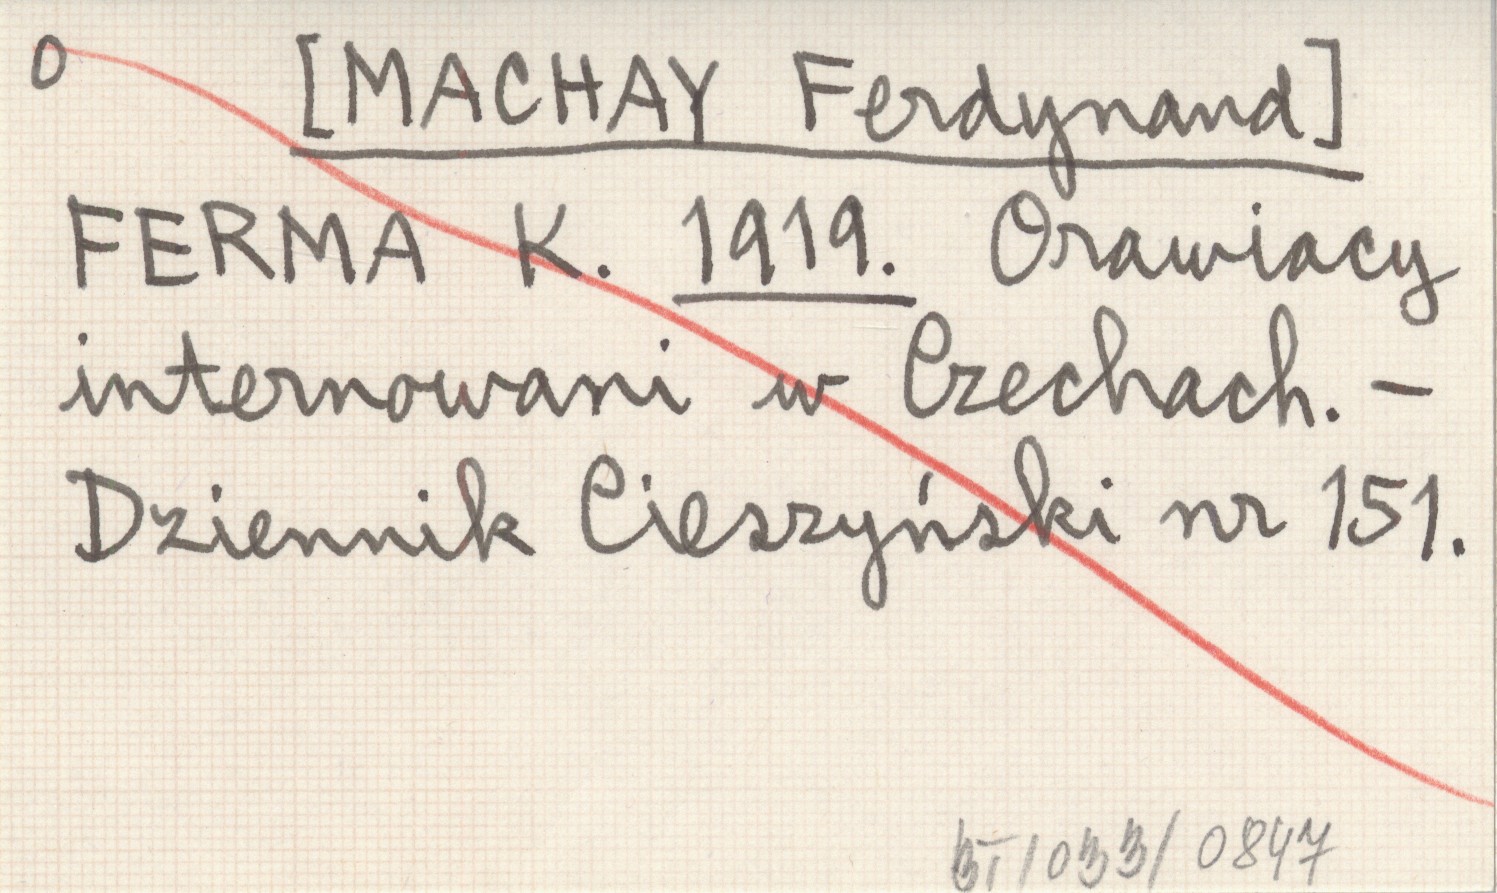 0 [MACHAY Ferdynand]
FERMA K. 1919. Orawiacy
internowani w Czechach. –
Dziennik Cieszyński nr 151.
0847